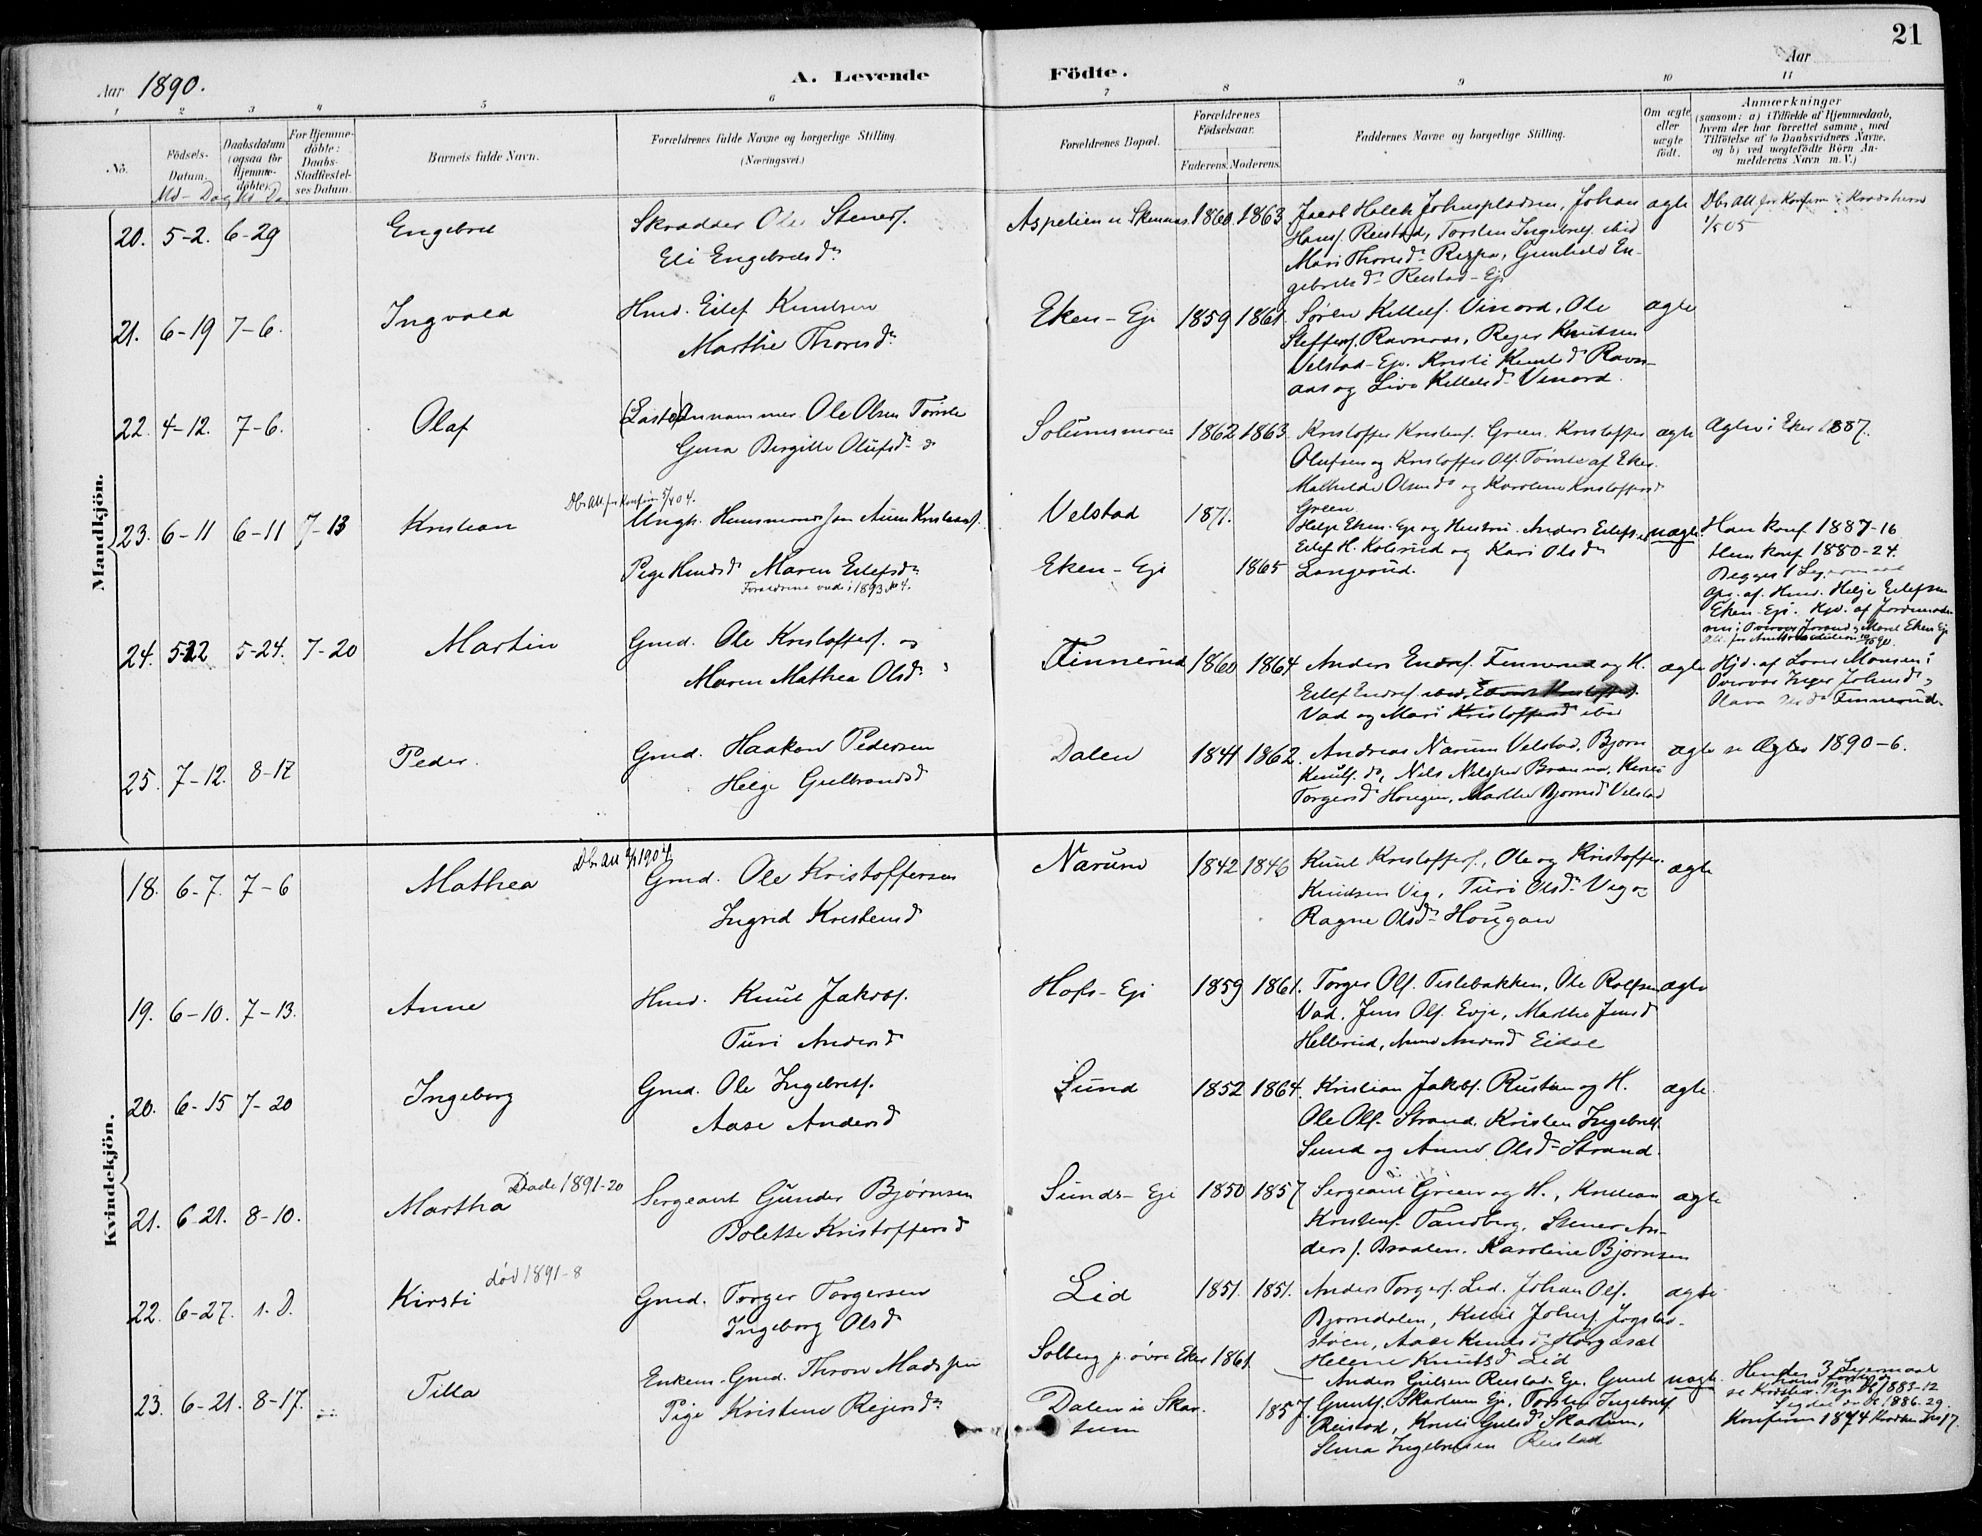 21
Aar 1890.
A. Levende Födte.
Aar
1 2 3 4 5 6 7 8 9 10 11
No.
Födsels-Datum.
Daabsdatum (ogsaa for Hjemme-döbte).
For Hjemme-döbte: Daabs-Stadfæstel-ses Datum.
Barnets fulde Navn.
Forældrenes fulde Navne og borgerlige Stilling. (Næringsvei.)
Forældrenes Bopæl.
Forældrenes Födselsaar.
Faderens. Moderens.
Faddernes Navne og borgerlige Stilling.
Om ægte eller uægte födt.
Anmærkninger
(saasom: a) i Tilfælde af Hjemmedaab, hvem der har forrettet samme, med Tilföielse af to Daabsvidners Navne, og b) ved uegtefödte Börn An-melderens Navn m. V.)
Md- Dag Md Da
Mandkjön.
20. 5-2. 6-29 Engebret Skrædder Ole Steners.
Eli Engebretsd.
Aspelien u Skennas 1860 1863 Jacob Holck Johnspladsen, Johan
Hans. Reistad, Torsten Ingebrets. ibid
Mari Thoresd. Reistad-Eje
ægte
1/5 05
21. 6-19 7-6. Ingvald Hmd. Eilef Knudsen
Marthe Thoresd.
Eken-Eje 1859 1861. Søren Kittels. Vinord, Ole
Steffens. Ravnaas, Rejer Knutsen
Velstad-Eje. Kristi Knutsd. Ravn-
aas og Live Kittelsd. Vinord.
ægte
22. 4-12. 7-6. Olaf Ole Olsen Tømte
Gina Birgitte Olufsd.
Solumsmoen 1862 1863. Kristoffer Kristens. Green. Kristoffer
Olufsen og Kristoffer Ols. Tømte af Eker.
Mathilde Olsend. og Karoline Kristoffersd.
Green
ægte Ægtev. i Eker 1887.
23. 6-11 6-11 7-13 Kristian Ungk.
Pige Hmdsd. Maren Eilefsd.
Forældrene viede i 1893 No 4.
Velstad 1871.
Eken-Eje 1865
Helge Eken-Eje og Hustru. Anders Eilefsen
Eilef H. Kolsrud og Kari Olsd.
Langerud.
uægte. Han konf. 1887-16
Hun konf. 1880-24.
Begges 1 Leiermaal
Opg. af Hmd. Helge Eilefsen
Eken-Eje. Hjd. af Jordmode-
24. 5-22 5-24. 7-20 Martin Gmd. Ole Kristoffers. og
Maren Mathea Olsd.
Finnerud 1860 1864 Anders Endres. Finnerud og H.
Eilef Endres. ibid,
Vad og Mari Kristoffersd. ibid
ægte Hjd. af Lovis Monsen i
Overvær Inger Johnsd.
Olava Finnerud.
25. 7-12. 8-17 Peder. Gmd. Haakon Pedersen
Helge Gulbrandsd.
Dalen 1841 1862. Andreas Narum Velstad, Bjørn
Knuts. do, Nils Nilssen Braaten, Kirsti
Torgersd. Hougen, Marthe Bjørnsd. Velstad
ægte se Ægtev. 1890-6.
Kvindekjön.
18. 6-7. 7-6 Mathea Gmd. Ole Kristoffersen
Ingrid Kristensd.
Narum 1842 1846 Knut Kristoffers., Ole og Kristoffer
Knudsen Vig, Turi Olsd. Vig og
Ragne Olsd. Hougan
ægte
19. 6-10. 7-13. Anne Hmd. Knut Jakobs.
Turi Andersd.
Hofs-Eje 1859 1861. Torger Ols. Tislebakken, Ole Rolfsen
Vad. Jens Ols. Evje, Marthe Jensd.
Hellerud, Anne Andersd. Eidal
ægte
20. 6-15 7-20 Ingeborg Gmd. Ole Ingebrets.
Aase Andersd.
Sund 1852 1864. Kristian Jakobs. Rustan og H.
Ole Ols. Strand. Kristen Ingebrets.
Sund og Anne Olsd. Strand.
ægte.
21. 6-21. 8-10. Martha Døde 1891-20 Sergeant Gunder Bjørnsen
Bolette Kristoffersd.
Sunds-Eje 1850 1857 Sergeant Green og H., Kristian
Kristens. Tandberg. Stener An-
ders. Braaten. Karoline Bjørnsen
ægte
22. 6-27. s. D. Kirsti død 1891-8 Gmd. Torger Torgersen
Ingeborg Olsd.
Lid 1851. 1851. Anders Torgers. Lid. Johan Ols.
Bjorndalen, Johns. Jogstad-
støen, Aase Knutsd. Horgasæt
Helene Knutsd. Lid
ægte
23. 6-21. 8-17. Tilla Enkem. Gmd. Thron Madssen
Pige Kristine Rejersd.
Solberg p. øvre Eker 1861
Dalen u Skar-
tum 1857.
Anders Gulsen Reistad-Eje. Gunt
Gunts. Skartum Eje, Torsten Ingebrets.
Reistad, Kristi Gulsd. Skartum,
Stina Ingebretsen Reistad
uægte Hendes 3 Leiermaal
1883-12
1886-29.
Konfirm 1874